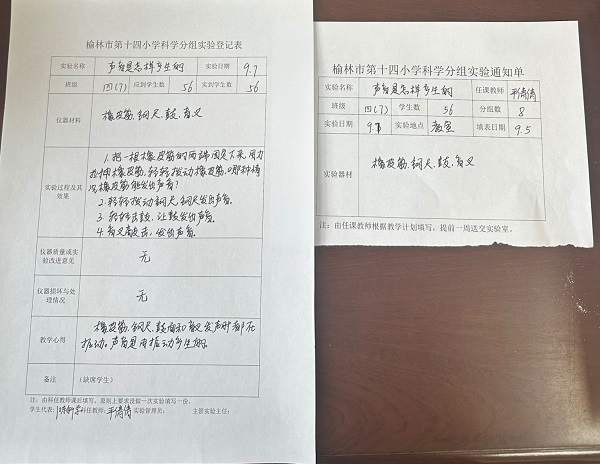 榆林市第十四小学科学分组实验登记表
实验名称 声音是怎样产生的 实验日期 9.7
班级 四(7) 应到学生数 56 实到学生数 56
仪器材料 橡皮筋、钢尺、鼓、音叉
实验过程及其效果
1. 把一根橡皮筋的两端固定下来,用力
拉伸橡皮筋,轻轻拨动橡皮筋,哪种情
况橡皮筋能发出声音?
2. 轻轻拨动钢尺,钢尺发出声音。
3. 轻轻击鼓,让鼓发出声音。
4. 音叉敲击,发出声音。
仪器质量或实验改进意见 无
仪器损坏与处理情况 无
教学心得
橡皮筋、钢尺、鼓面和音叉发声时都在
振动。声音是由振动产生的。
备注 (缺席学生)
注:由科任教师课后填写,原则上要求没做一次实验填写一份。
学生代表: 科任教师: 实验管理员: 主管实验主任:
榆林市第十四小学科学分组实验通知单
实验名称 声音是怎样产生的 任课教师
班级 四(7) 学生数 56 分组数 8
实验日期 9.7 实验地点 教室 填表日期 9.5
实验器材 橡皮筋、钢尺、鼓、音叉
注:由任课教师根据教学计划填写,提前一周送交实验室。